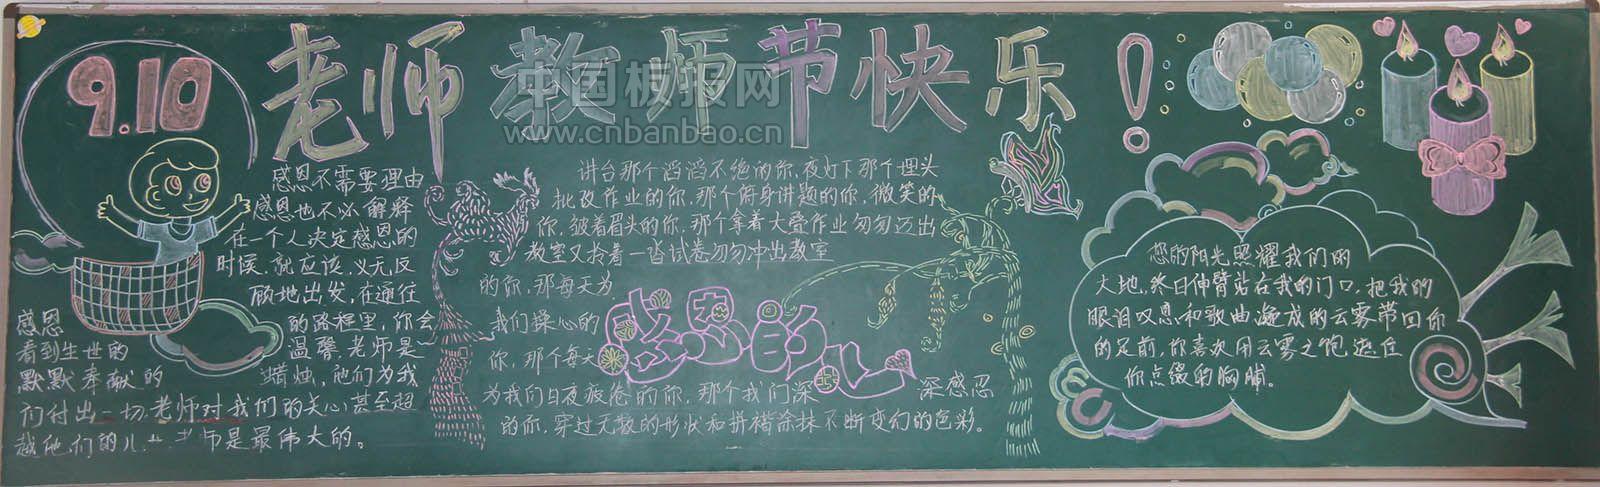 9.10
老师 教师节快乐!
中国板报网
www.cnbanbao.cn
感恩不需要理由
感恩也不必解释
在一个人决定感恩的
时候,就应该,义无反
顾地出发,在通往
的路程里,你会
感恩
看到生世的
温馨,老师是
默默奉献的
蜡烛,他们为我
们付出一切,老师对我们的关心甚至超
越他们的儿女老师是最伟大的。
讲台那个滔滔不绝的你,夜灯下那个埋头
批改作业的你,那个俯身讲题的你,微笑的
你,皱着眉头的你,那个拿着大叠作业匆匆迈出
教室又拎着一沓试卷匆匆冲出教室
的你,那每天为
我们操心的
你,那个每天
为我们日夜疲惫的你,那个我们深深感忍
的你,穿过无数的形状和拼褶涂抹不断变幻的色彩。
感恩的心
您的阳光照耀我们的
大地,终日伸臂站在我的门口,把我的
眼泪叹息和歌曲凝成的云雾带回你
的足前,你喜欢用云雾之饱遮住
你点缀的胸脯。